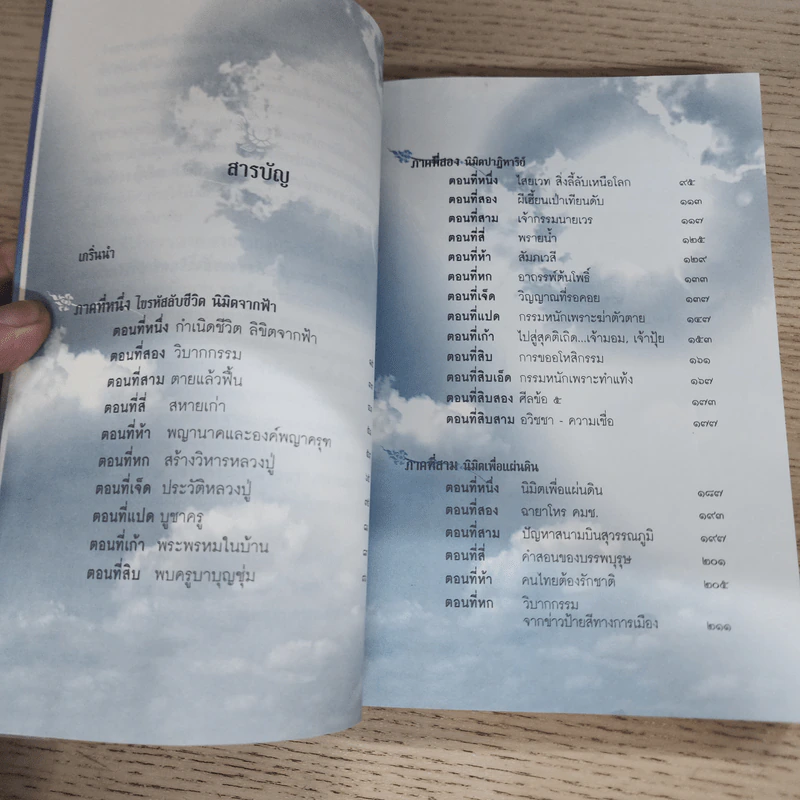 สารบัญ
เกริ่นนำ
ภาคที่หนึ่ง ไขรหัสลับชีวิต นิมิตจากฟ้า
ตอนที่หนึ่ง กำเนิดชีวิต ลิขิตจากฟ้า
ตอนที่สอง วิบากกรรม
ตอนที่สาม ตายแล้วฟื้น
ตอนที่สี่ สหายเก่า
ตอนที่ห้า พญานาคและองค์พญาครุฑ
ตอนที่หก สร้างวิหารหลวงปู่
ตอนที่เจ็ด ประวัติหลวงปู่
ตอนที่แปด บูชาครู
ตอนที่เก้า พระพรหมในบ้าน
ตอนที่สิบ พบครูบาบุญชุ่ม
ภาคที่สอง นิมิตปาฏิหาริย์
ตอนที่หนึ่ง ไสยเวท สิ่งลี้ลับเหนือโลก ๙๕
ตอนที่สอง ผีเฮี้ยนเป่าเทียนดับ ๑๑๓
ตอนที่สาม เจ้ากรรมนายเวร ๑๑๗
ตอนที่สี่ พรายน้ำ ๑๒๕
ตอนที่ห้า สัมภเวสี ๑๒๙
ตอนที่หก อาถรรพ์ต้นโพธิ์ ๑๓๓
ตอนที่เจ็ด วิญญาณที่รอคอย ๑๓๗
ตอนที่แปด กรรมหนักเพราะฆ่าตัวตาย ๑๔๗
ตอนที่เก้า ไปสู่สุคติเถิด...เจ้ามอม, เจ้าปุ้ย ๑๕๓
ตอนที่สิบ การขออโหสิกรรม ๑๖๑
ตอนที่สิบเอ็ด กรรมหนักเพราะทำแท้ง ๑๖๗
ตอนที่สิบสอง ศีลข้อ ๕ ๑๗๓
ตอนที่สิบสาม อวิชชา - ความเชื่อ ๑๗๗
ภาคที่สาม นิมิตเพื่อแผ่นดิน
ตอนที่หนึ่ง นิมิตเพื่อแผ่นดิน ๑๘๗
ตอนที่สอง ฉายาโหร คมช. ๑๙๓
ตอนที่สาม ปัญหาสนามบินสุวรรณภูมิ ๑๙๗
ตอนที่สี่ คำสอนของบรรพบุรุษ ๒๐๑
ตอนที่ห้า คนไทยต้องรักชาติ ๒๐๕
ตอนที่หก วิบากกรรม
จากข่าวป้ายสีทางการเมือง ๒๑๑